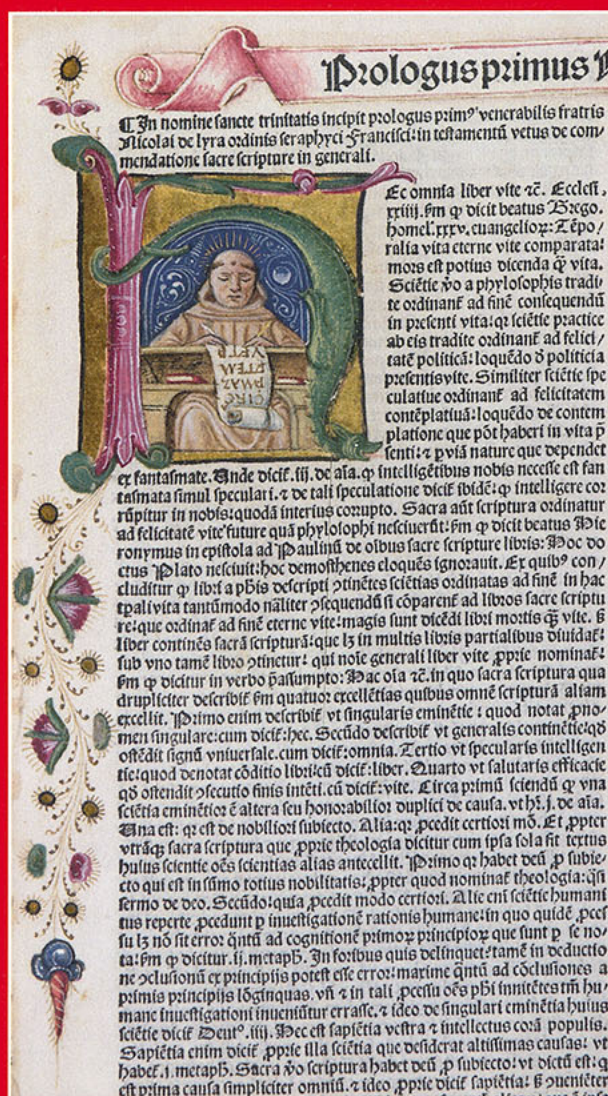 Prologus primus
¶ In nomine sancte trinitatis incipit prologus primꝰ venerabilis fratris
Nicolai de lyra ordinis seraphyci Francisci: in testamentū vetus de com/
mendatione sacre scripture in generali.
Ec omnia liber vite ⁊č. Ecclesi.
xxiiij. ẜm ꝙ dicit beatus Grego.
homel. xxxv. euangelioꝝ: Tēpo/
ralia vita eterne vite comparata:
mors est potius dicenda q̄ꝫ vita.
Sciētie ṽo a phylosophis tradi
te ordinanť ad finē consequendū
in presenti vita: qꝛ sciētie practice
ab eis tradite ordinanť ad felici/
tatē politicā: loquēdo ð politicia
presentis vite. Similiter sciētie spe
culatiue ordinanť ad felicitatem
contēplatiuā: loquēdo de contem
platione que pōt haberi in vita p̄
senti: ⁊ ꝑ viā nature que dependet
ex fantasmate. Unde diciť .iij. de aīa. ꝙ intelligētibus nobis necesse est fan
tasmata simul speculari. ⁊ de tali speculatione diciť ibidē: ꝙ intelligere cor
rūpitur in nobis: quodā interius corrupto. Sacra aūt scriptura ordinatur
ad felicitatē vite future quā phylosophi nesciuerūt: ẜm ꝙ dicit beatus Hie
ronymus in epistola ad Paulinū de oībus sacre scripture libris: Hoc do
ctus Plato nesciuit: hoc demosthenes eloquēs ignorauit. Ex quibꝰ con/
cluditur ꝙ libri a pħis descripti ꝯtinētes sciētias ordinatas ad finē in hac
tp̄ali vita tantūmodo nāliter ꝯsequendū si cōparenť ad libros sacre scriptu
re: que ordinať ad finē eterne vite: magis sunt dicēdi libri mortis q̄ꝫ vite. ẞ
liber continēs sacrā scripturā: que lꝫ in multis libris partialibus diuidať:
sub vno tamē libro ꝯtinetur: qui noīe generali liber vite ꝓprie nominať:
ẜm ꝙ dicitur in verbo p̄assumpto: Hac oīa ⁊č. in quo sacra scriptura qua
drupliciter describiť ẜm quatuor excellētias quibus omnē scripturā aliam
excellit. Primo enim describiť vt singularis eminētie: quod notat ꝓno/
men singulare: cum dicit: hec. Secūdo describiť vt generalis continētie: qð
ostēdit signū vniuersale. cum dicit: omnia. Tertio vt specularis intelligen
tie: quod denotat cōditio libri: cū dicit: liber. Quarto vt salutaris efficacie
qð ostendit ꝯsecutio finis intēti. cū dicit: vite. Circa primū sciendū ꝙ vna
sciētia eminētior ē altera seu honorabilior duplici de causa. vt hr̄. j. de aīa.
Una est: qꝛ est de nobiliori subiecto. Alia: qꝛ ꝓcedit certiori mō. Et ꝓpter
vtrāqꝫ sacra scriptura que ꝓprie theologia dicitur cum ipsa sola sit textus
huius scientie oēs scientias alias antecellit. Primo qꝛ habet deū ꝓ subie/
cto qui est in sūmo totius nobilitatis: ꝓpter quod nominať theologia: q̄si
sermo de deo. Secūdo: quia ꝓcedit modo certiori. Alie eni sciētie humani
tus reperte ꝓcedunt ꝑ inuestigationē rationis humane: in quo quidē ꝓces
su lꝫ nō sit error q̄ntū ad cognitionē primoꝝ principioꝝ que sunt ꝑ se no/
ta: ẜm ꝙ dicitur .ij. metaph. In foribus quis delinquet: tamē in deductio
ne ꝯclusionū ex principijs potest esse error: maxime q̄ntū ad cōclusiones a
primis principijs lōginquas. vñ ⁊ in tali ꝓcessu oēs pħi innitētes tm̄ hu/
mane inuestigationi inueniūtur errasse. ⁊ ideo de singulari eminētia huius
sciētie dicit Deutꝰ. iiij. Hec est sapiētia vestra ⁊ intellectus corā populis.
Sapiētia enim diciť ꝓprie illa sciētia que desiderat altissimas causas: vt
habeť. j. metaph. Sacra ṽo scriptura habet deū ꝓ subiecto: vt dictū est: q
est prima causa simpliciter omniū. ⁊ ideo ꝓprie diciť sapiētia: